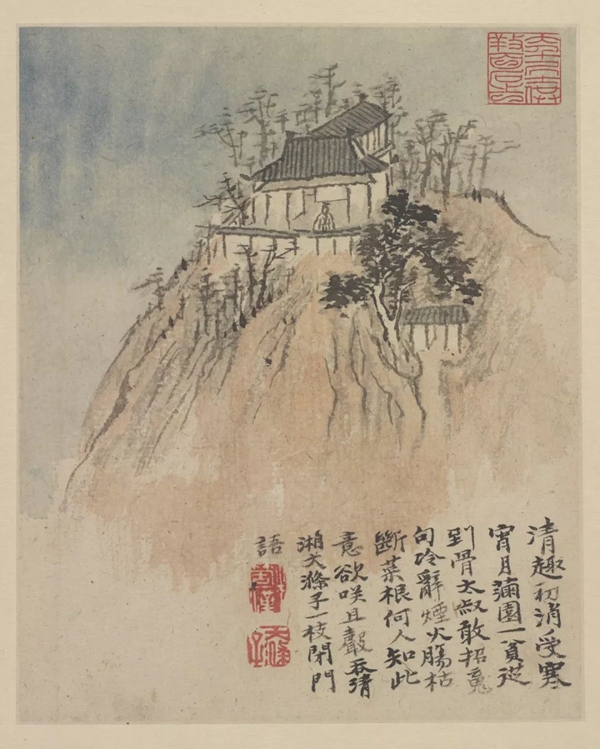 清趣初消受寒
宵月滿園一貧從
到骨太敢招
句冷辭煙火腸枯
斷菜根何人知此
意欲咲且聲吞清
湘大滌子一枝閣門
語